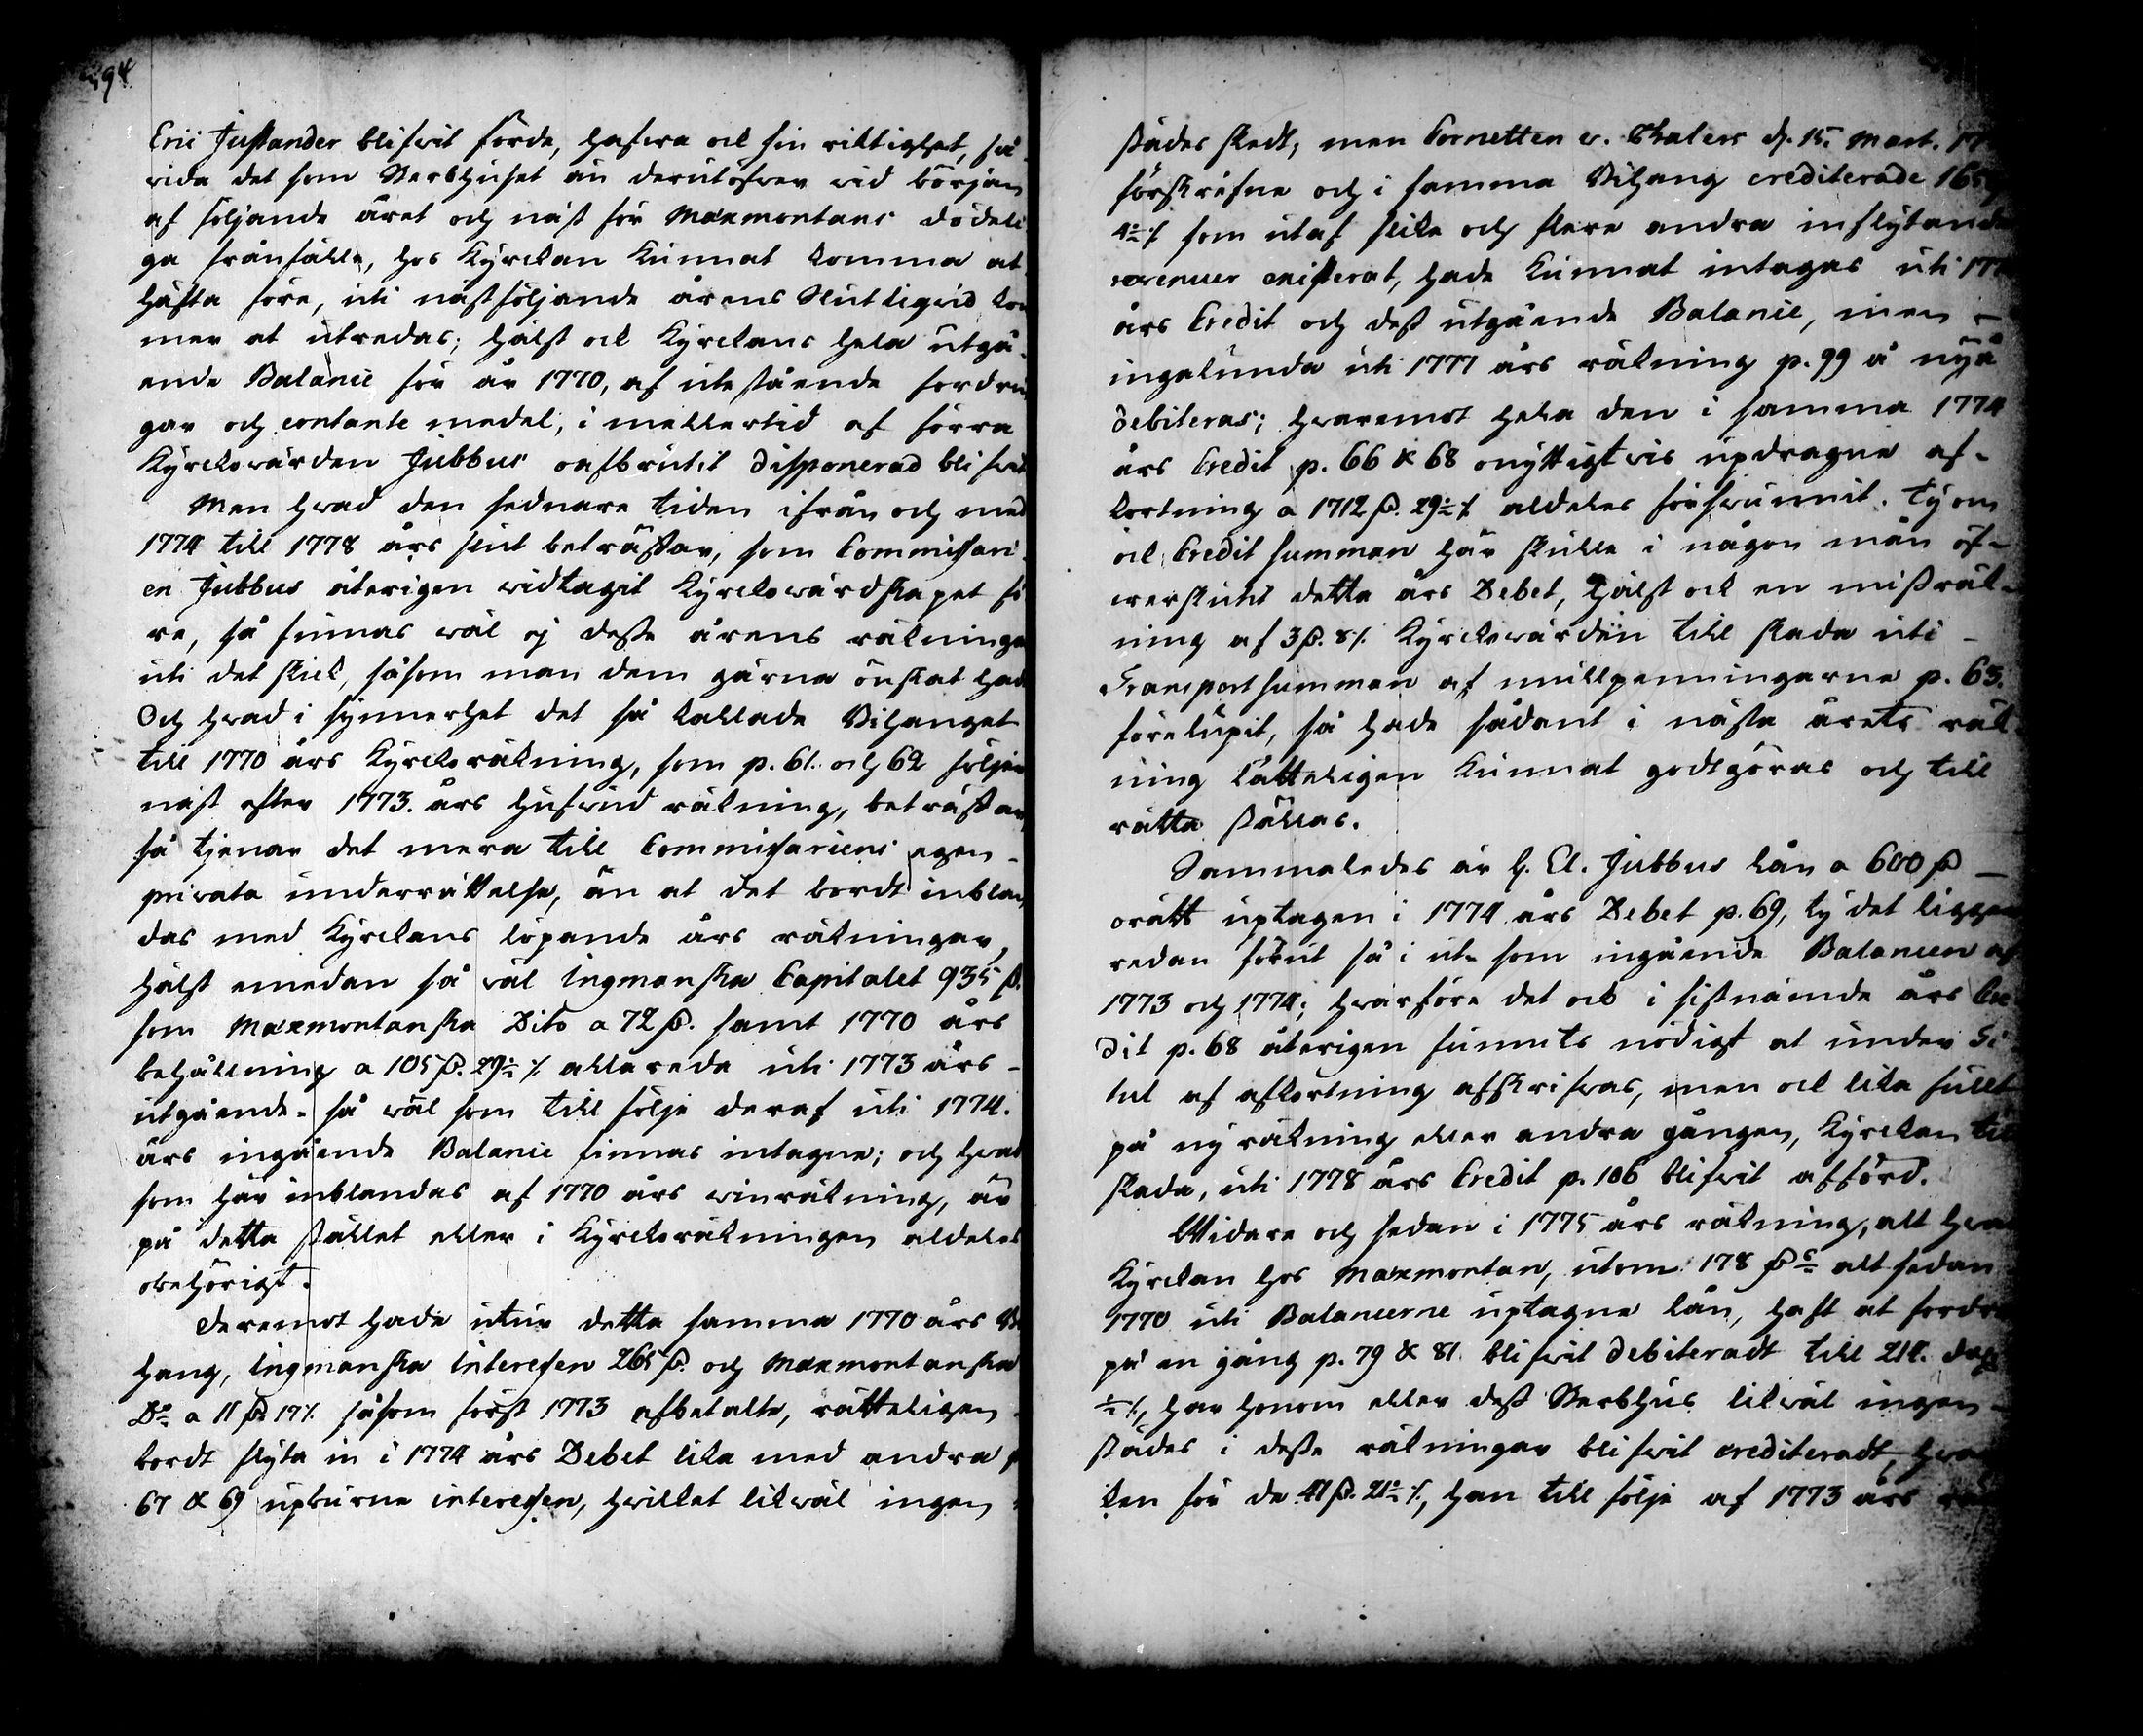 94
Eric Justander blifwit förde, hafwa ock sin riktighet, så-
wida det som Sterbhuset än derutöfwer wid början
af följande året och näst för Maxmontans dödeli-
ga frånfälle, hos Kyrckan kunnat komma at
häfta före, uti nästföljande årens Slutliqvid kom
mer at utredas; hälst ock Kyrckans hela utgå-
ende Balance för år 1770, af utestående fordrin
gar och contante medel, i mellertid af förra
Kyrckowärden Jubbus oafbrutit disponerad blifwit
Men hwad den sednare tiden ifrån och med
1774 till 1778 års slut beträffar, som Commissari-
en Jubbus återigen widtagit Kyrckowärdskapet fö
re, så finnas wäl ej desse årens räkningar
uti det skick, såsom man dem gärna önskat hade
Och hwad i synnerhet det så kallade Bihanget
till 1770 års Kyrckoräkning, som p. 61. och 62 följer
näst efter 1773. års hufwud räkning, beträffar,
så tjenar det mera till Commissariens egen
privata underrättelse, än at det bordt inblan
das med Kyrckans löpande års räkningar,
hälst emedan så wäl Ingmanska Capitalet 935 ß.
som Maxmontanska Dito a 72 ß. samt 1770 års
behållning a 105 ß. 29 ÷ allareda uti 1773 års -
utgående - så wäl som till följe deraf uti 1774.
års ingående Balance finnas intagne; och hwad
som här inblandas af 1770 års winräkning, är
på detta stället eller i Kyrckoräkningen aldeles
obehörigt.
Deremot hade utur detta samma 1770 års Bi
hang, Ingmanska Interessen 265 ß. och Maxmontanska
Do a 11 ß. 17 ÷ såsom först 1773 afbetalte, rätteligen
bordt flyta in i 1774 års Debet lika med andra p
67 & 69 upburne interessen, hwilket likwäl ingen
städes skedt; men Cornetten v. Thalers d. 15. Mart. 17
förskrefne och i samma Bihang crediterade 165
4 ÷ som utaf slike och flere andra inflytande
revenuer existerat, hade kunnat intagas uti 177
års Credit och dess utgående Balance, men -
ingalunda uti 1777 års räkning p. 99 å nyo
debiteras; hwaremot hela den i samma 1774
års Credit p. 66 & 68 onyttigtwis updragne af-
kortning a 1712 ß. 29 ÷ aldeles förswunnit. Ty om
ock Credit summan här skulle i någon mån öf-
werskutit detta års Debet, hälst ock en missräk-
ning af 3 ß. 8 ÷ Kyrckowärden till skada uti -
Transport summan af mullpenningarne p. 63.
förelupit, så hade sådant i nästa årets räk
ning lätteligen kunnat godtgöras och till
rätta ställas.
Sammaledes är h. El. Jubbus lån a 600 ß -
orätt uptagen i 1774 års Debet p. 69, ty det ligger
redan förut så i ut- som ingående Balancen af
1773 och 1774; hwarföre det ock i sistnämde års Cre-
dit p. 68 återigen funnits nödigt at under Ti-
tul af afkortning afskrifwas, men ock lika fullt
på ny räkning eller andra gången, Kyrckan till
skada, uti 1778 års Credit p. 106 blifwit afförd.
Widare och sedan i 1775 års räkning, alt hwad
Kyrckan hos Maxmontan, utom 178 ß alt sedan
1770 uti Balancerne uptagne lån, haft at fordra
på en gång p. 79 & 81 blifwit debiteradt till 214. dal
÷, har honom eller dess Sterbhus likwäl ingen-
städes i desse räkningar blifwit crediteradt, hwar
ken för de 41 ß. 21 ÷, han till följe af 1773 års